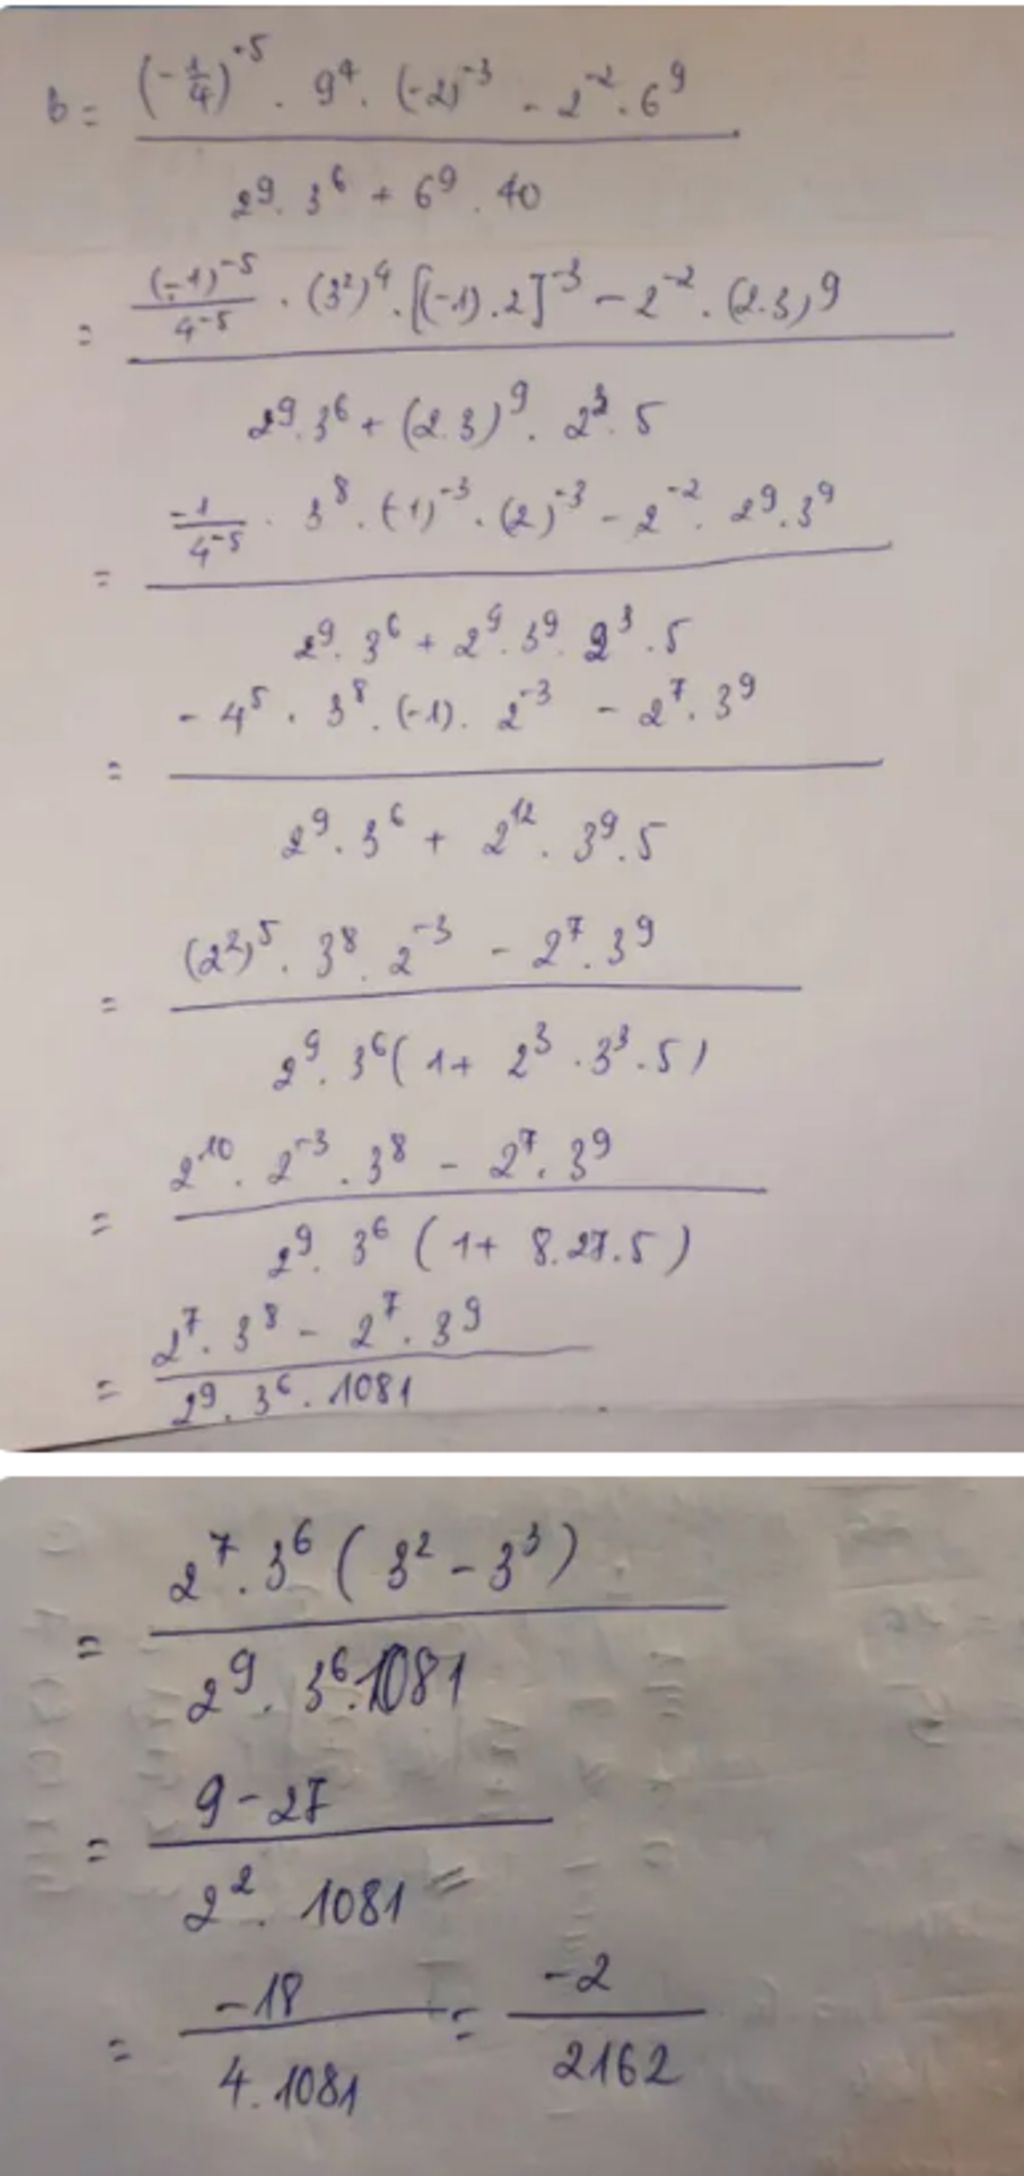 b = ((-1/4)^-5 . 9^4 . (-2)^-3 - 2^-2 . 6^9) / (2^9 . 3^6 + 6^9 . 40)
= ((-1)^-5 / 4^-5 . (3^2)^4 . [(-1) . 2]^-3 - 2^-2 . (2.3)^9) / (2^9 . 3^6 + (2.3)^9 . 2^3 . 5)
= (-1 / 4^-5 . 3^8 . (-1)^-3 . (2)^-3 - 2^-2 . 2^9 . 3^9) / (2^9 . 3^6 + 2^9 . 3^9 . 2^3 . 5)
= (-4^5 . 3^8 . (-1) . 2^-3 - 2^7 . 3^9) / (2^9 . 3^6 + 2^12 . 3^9 . 5)
= ((2^2)^5 . 3^8 . 2^-3 - 2^7 . 3^9) / (2^9 . 3^6 (1 + 2^3 . 3^3 . 5))
= (2^10 . 2^-3 . 3^8 - 2^7 . 3^9) / (2^9 . 3^6 (1 + 8.27.5))
= (2^7 . 3^8 - 2^7 . 3^9) / (2^9 . 3^6 . 1081)
= (2^7 . 3^6 (3^2 - 3^3)) / (2^9 . 3^6 . 1081)
= (9 - 27) / (2^2 . 1081) =
= -18 / (4 . 1081) = -2 / 2162